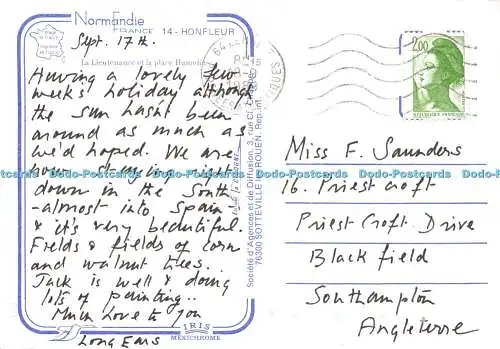 Normandie
FRANCE 14 - HONFLEUR
Sept. 17th.
La Lieutenance et la place Hamelin
Having a lovely few
weeks holiday although
the sun hasn't been
around as much as
we'd hoped. We are
now staying right
down in the South
-almost into Spain
& it's very beautiful.
Fields & fields of corn
and walnut trees..
Jack is well & doing
lots of painting..
Much Love to you
Long Ears
IRIS
MEXICHROME
Société d'Agences et de Diffusion, 3, rue
76300 SOTTEVILLE LES ROUEN. Rep. int.
2,00
REPUBLIQUE FRANCAISE
Miss F. Saunders
16. Priestcroft
Priest Croft Drive
Blackfield
Southampton
Angleterre
Dodo-Postcards.com